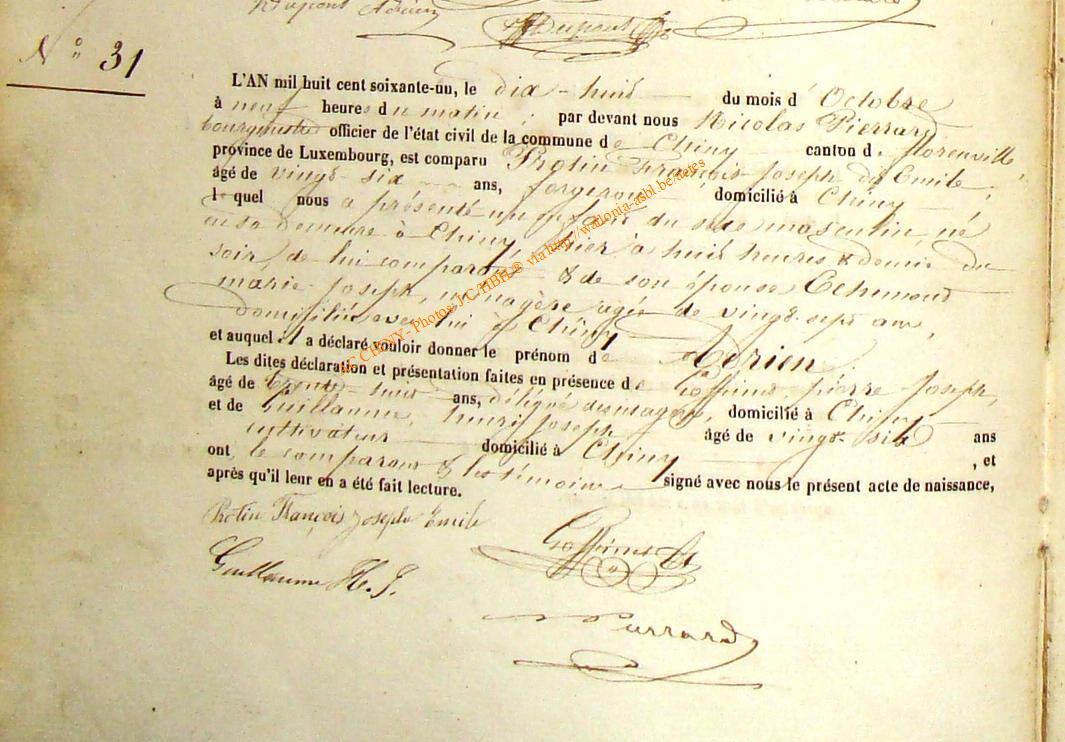 Dupont Adrien
Dupont
N° 31
L'AN mil huit cent soixante-un, le dix-huit du mois d' Octobre
à neuf heures du matin, par devant nous Nicolas Pierrard,
bourgmestre officier de l'état civil de la commune de Chiny canton de florenville
province de Luxembourg, est comparu Protin François-Joseph dit Emile,
âgé de vingt-six ans, forgeron domicilié à Chiny
le quel nous a présenté un enfant du sexe masculin, né
en sa demeure à Chiny, hier à huit heures & demie du
soir, de lui comparant & de son épouse Echement
marie-Joseph, ménagère agée de vingt-sept ans,
domiciliée avec lui à Chiny
et auquel il a déclaré vouloir donner le prénom de Adrien.
Les dites déclaration et présentation faites en présence de Goffinet, pierre Joseph,
âgé de trente-huit ans, délégué domicilié à Chiny
et de Guillaume, henri Joseph âgé de vingt-six ans
cultivateur domicilié à Chiny, et
ont, le comparant & les témoins signé avec nous le présent acte de naissance,
après qu'il leur en a été fait lecture.
Protin François Joseph Emile
Goffinet
Guillaume H. J.
Pierrard
CHINY - Photos J.C.HBH © via http://wallonia-asbl.be/tetes